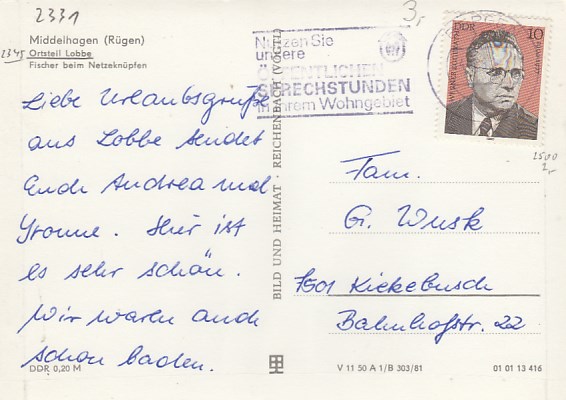 2331
3,-
Middelhagen (Rügen)
2345 Ortsteil Lobbe
Fischer beim Netzeknüpfen
Liebe Urlaubsgrüße
aus Lobbe sendet
Euch Andrea und
Yvonne. Hier ist
es sehr schön.
Wir waren auch
schon baden.
DDR 0,20 M
BILD UND HEIMAT · REICHENBACH (VOGTL)
Nutzen Sie
unsere
ÖFFENTLICHEN
SPRECHSTUNDEN
in Ihrem Wohngebiet
DDR
10
2500
1,-
Fam.
G. Wusk
7501 Kiekebusch
Bahnhofstr. 22
V 11 50 A 1/B 303/81
01 01 13 416